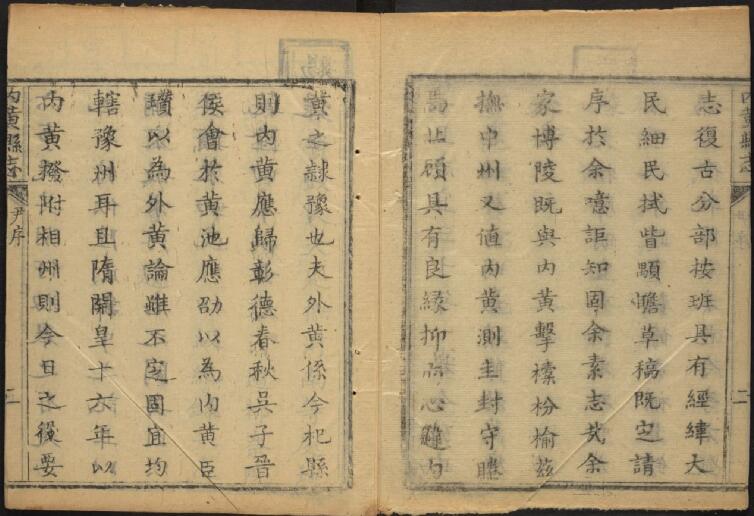 志復古分部按班具有經緯大
民細民拭眥顒瞻草稿既定請
序於余噫詎知固余素志哉余
家博陵既與内黄擊榛枌榆茲
撫中州又值内黄測圭封守
焉此具有良緣抑心
黄之隷豫也夫外黄係今杞縣
則内黄應歸彰德春秋吳子晉
侯會於黄池應劭以為内黄臣
瓚以為外黄論雖不定固宜均
轄豫州耳且隋開皇十六年以
内黄撥附相州則今日之役要
内黄縣志
尹序
二